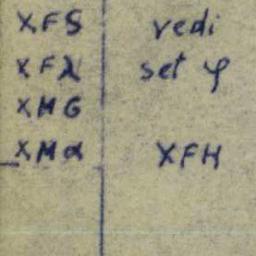 XFS vedi
XFλ set φ
XMG
XMα XFH